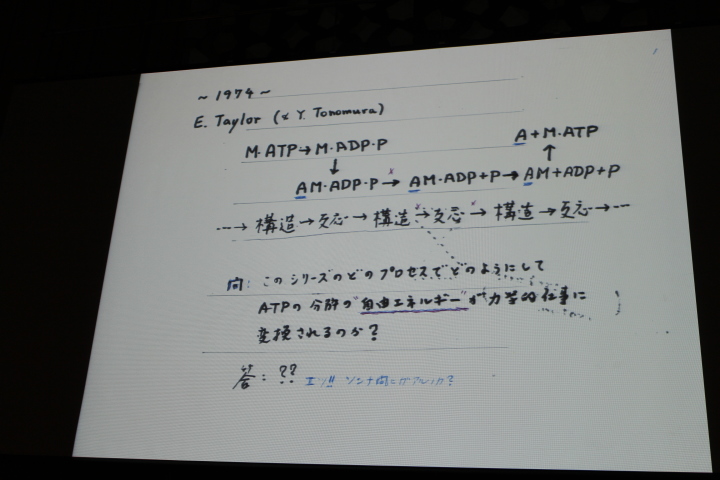 ~ 1974 ~
E. Taylor (& Y. Tonomura)
A + M·ATP
M·ATP → M·ADP·P
↓ ↑
AM·ADP·P → AM·ADP + P → AM + ADP + P
---→ 構造 → 反応 → 構造 → 反応 → 構造 → 反応 → ---
問: このシリーズのどのプロセスでどのようにして
ATPの分解の"自由エネルギー"が力学的仕事に
変換されるのか?
答: ?? エッ!! ソンナ問にが